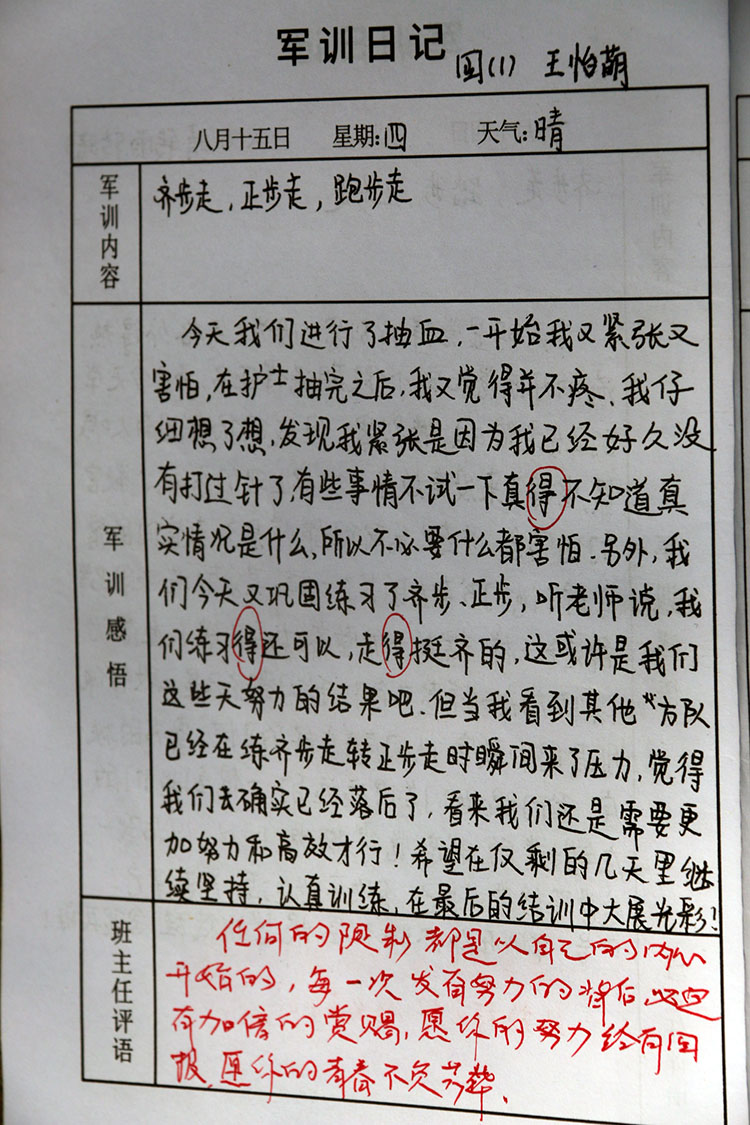 军训日记 四(1) 王怡萌
八月十五日 星期:四 天气:晴
军训内容
齐步走,正步走,跑步走
军训感悟
今天我们进行了抽血,一开始我又紧张又
害怕,在护士抽完之后,我又觉得并不疼.我仔
细想了想,发现我紧张是因为我已经好久没
有打过针了.有些事情不试一下真得不知道真
实情况是什么,所以不必要什么都害怕.另外,我
们今天又巩固练习了齐步、正步,听老师说,我
们练习得还可以,走得挺齐的,这或许是我们
这些天努力的结果吧.但当我看到其他方队
已经在练齐步走转正步走时瞬间来了压力,觉得
我们去确实已经落后了,看来我们还是需要更
加努力和高效才行!希望在仅剩的几天里继
续坚持,认真训练,在最后的结训中大展光彩!
班主任评语
任何的限制都是从自己的内心
开始的,每一次发奋努力的背后,必
有加倍的赏赐,愿你的努力终有回
报,愿你的青春不负芳华.